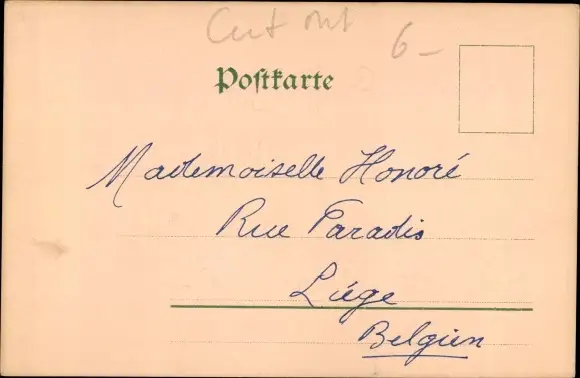 Cut out 6-
Postkarte
Mademoiselle Honoré
Rue Paradis
Liége
Belgien